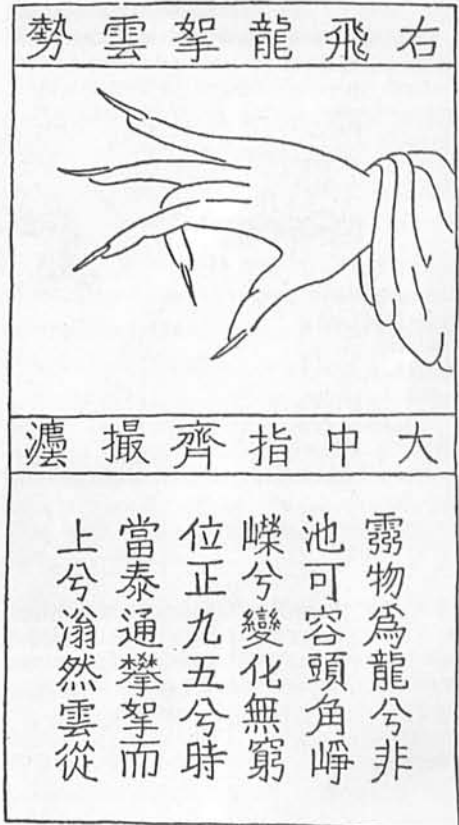 右飛龍挐雲勢
大中指齊撮
物爲龍兮非
池可容頭角崢
嶸兮變化無窮
位正九五兮時
當泰通攀挐而
上兮滃然雲從